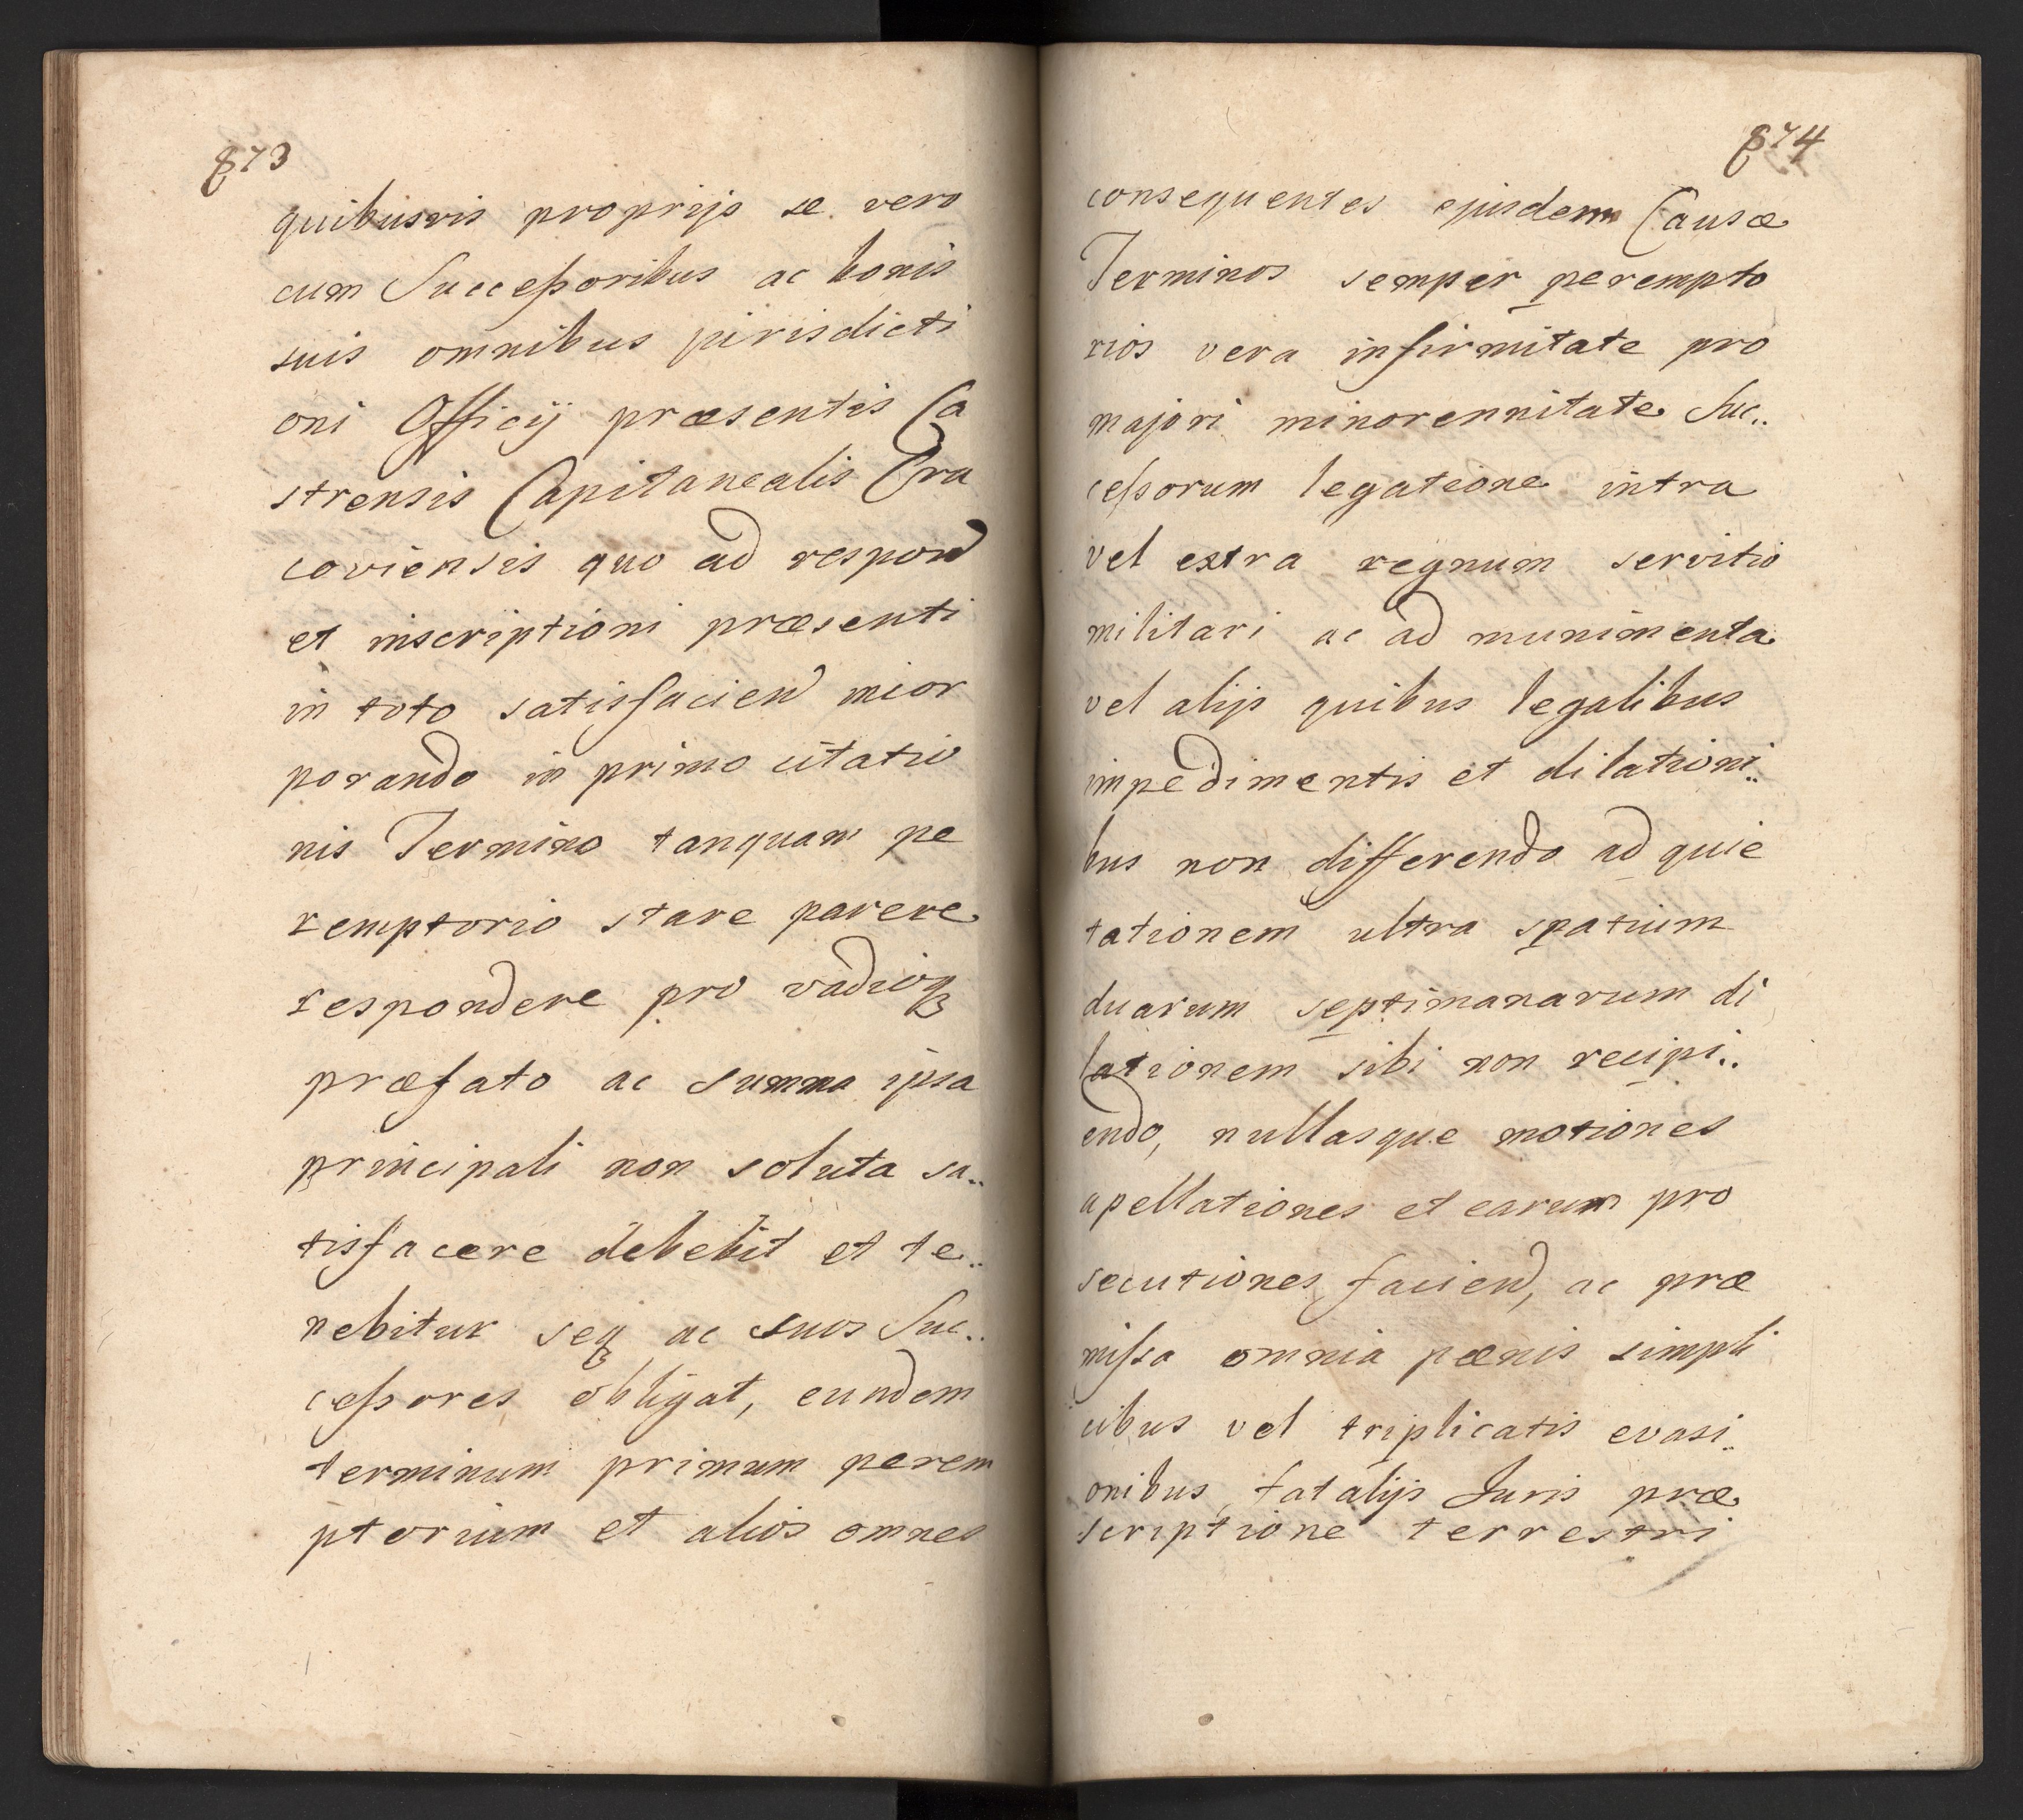 873
quibusvis proprijs se vero
cum Successoribus ac bonis
suis omnibus jurisdicti
oni Officij præsentis Ca
strensis Capitanealis Cra
coviensis quo ad respond
et inscriptioni præsenti
in toto satisfaciend incor
porando in primo citatio
nis Termino tanquam pe
remptorio stare parere
respondere pro vadioq
præfato ac summa ipsa
principali non soluta sa..
tisfacere debebit et te..
nebitur seq ac suos Suc..
cessores obligat, eundem
terminum primum perem
ptorium et alios omnes
874
consequentes ejusdem Causæ
Terminos semper perempto
rios vera infirmitate pro
majori minorennitate Suc..
cessorum legatione intra
vel extra regnum servitio
militari ac ad munimenta
vel alijs quibus legalibus
impedimentis et dilationi..
bus non differendo ad quie
tationem ultra spatium
duarum septimanarum di
lationem sibi non recipi..
endo, nullasque motiones
apellationes et earum pro
secutiones faciend, ac præ
missa omnia pœnis simpli
cibus vel triplicatis evasi..
onibus, fatalijs Juris præ
scriptione terrestri